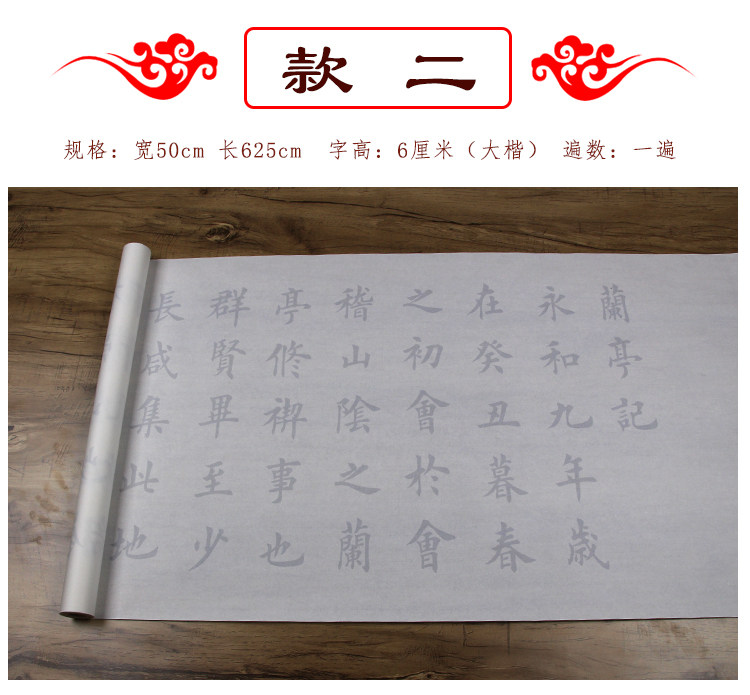 款 二
规格：宽50cm 长625cm 字高：6厘米（大楷） 遍数：一遍
蘭亭記
永和九年歲
在癸丑暮春
之初會於會
稽山陰之蘭
亭修禊事也
群賢畢至少
長咸集此地